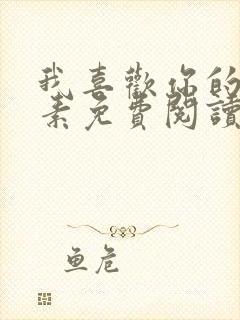 我喜歡你的
素免費閱讀
鱼危